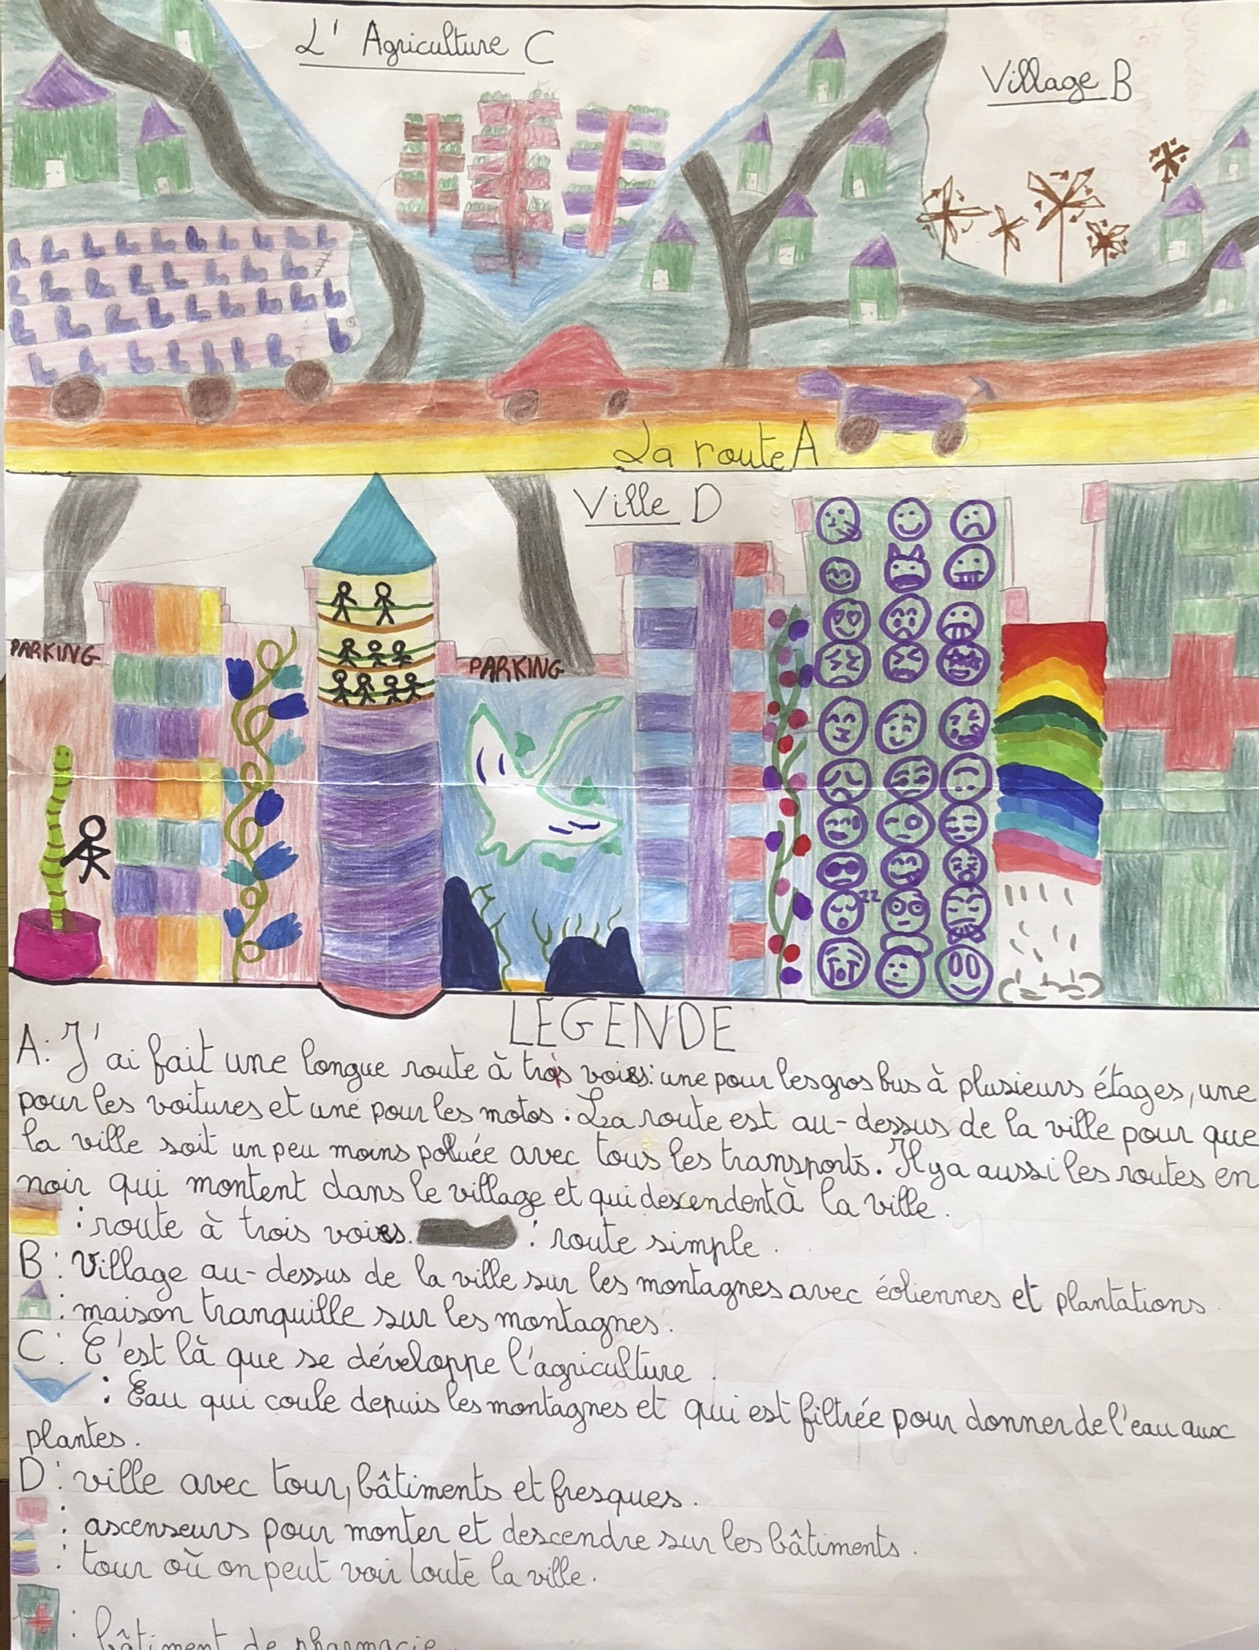 L' Agriculture C
Village B
La route A
Ville D
PARKING
PARKING
zz
LEGENDE
A: J'ai fait une longue route à trois voies: une pour les gros bus à plusieurs étages, une
pour les voitures et une pour les motos. La route est au-dessus de la ville pour que
la ville soit un peu moins polluée avec tous les transports. Il y a aussi les routes en
noir qui montent dans le village et qui descendent à la ville.
: route à trois voies. : route simple.
B: Village au-dessus de la ville sur les montagnes avec éoliennes et plantations.
: maison tranquille sur les montagnes.
C: C'est là que se développe l'agriculture.
: Eau qui coule depuis les montagnes et qui est filtrée pour donner de l'eau aux
plantes.
D: ville avec tour, bâtiments et fresques.
: ascenseurs pour monter et descendre sur les bâtiments.
: tour où on peut voir toute la ville.
: bâtiment de pharmacie.